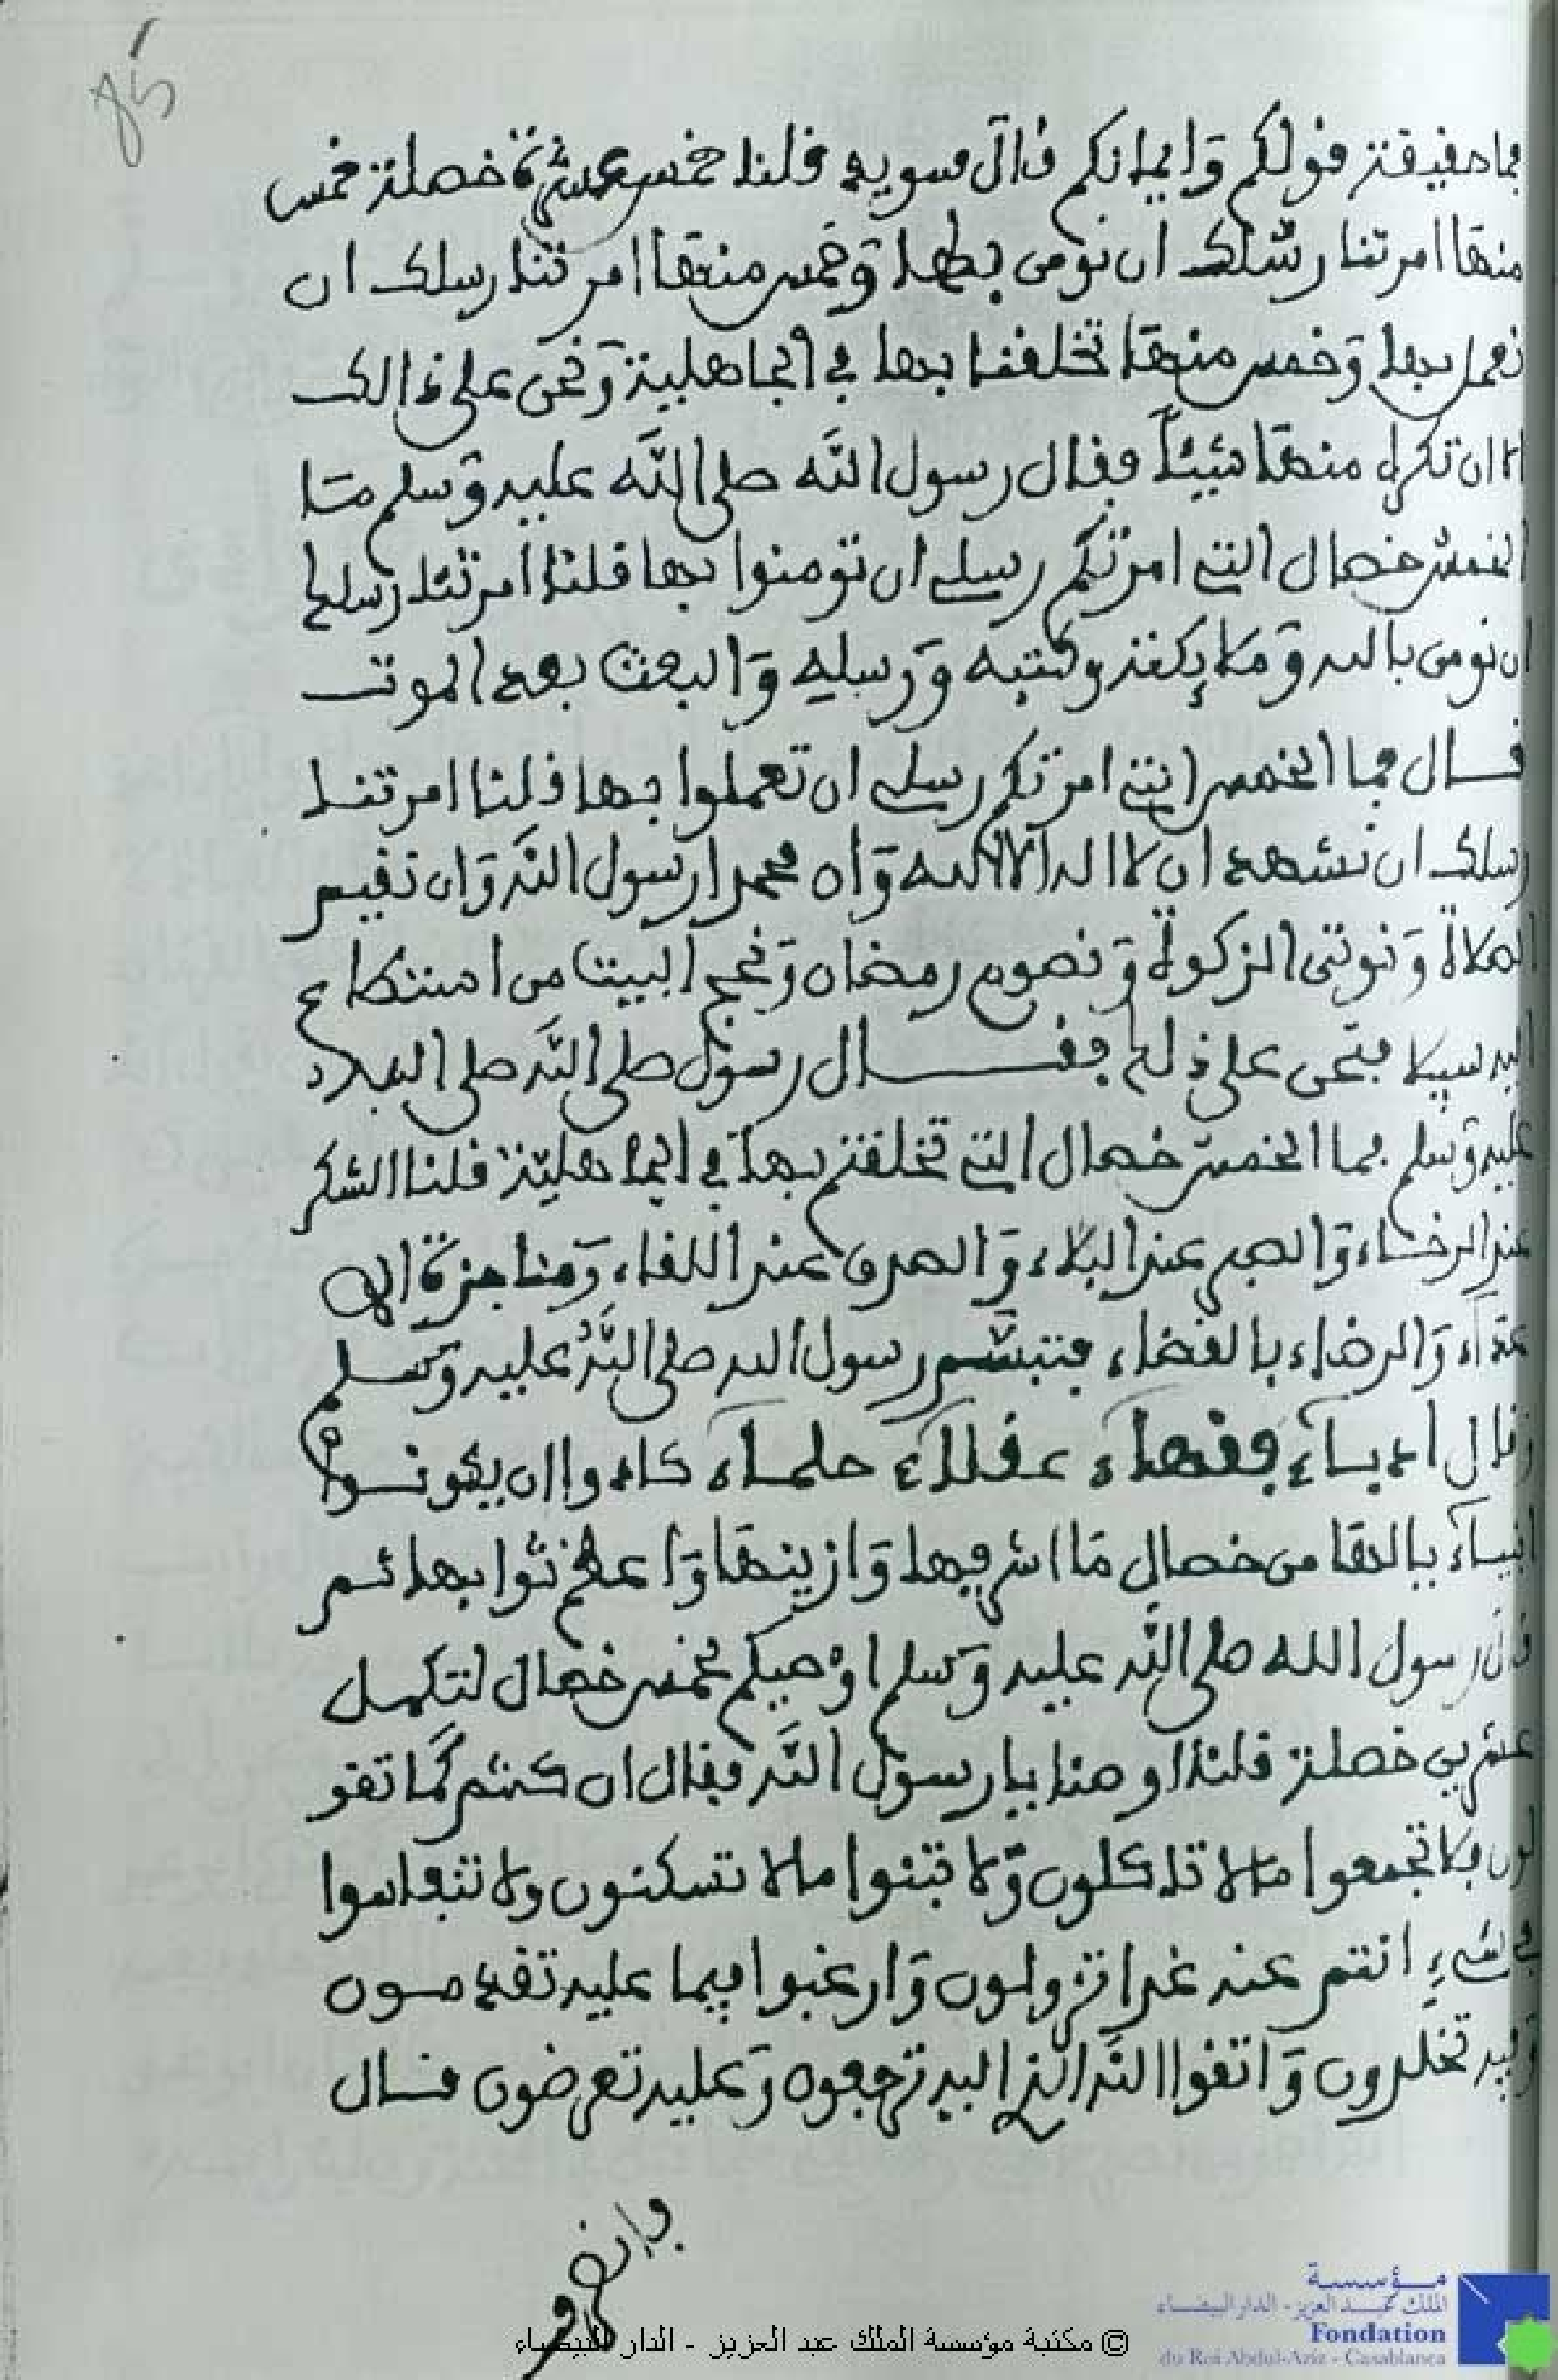 85
فما حقيقة قولكم وايمانكم قال سويد قلنا خمس عشرة خصلة خمس
منها امرتنا رسلك ان نومن بها وخمس منها امرتنا رسلك ان
نعمل بها وخمس منها تخلقنا بها في الجاهلية ونحن على ذالك
الا ان تكره منها شيئا فقال رسول الله صلى الله عليه وسلم ما
الخمس خصال التي امرتكم رسلي ان تومنوا بها قلنا امرتنا رسلك
ان نومن بالله وملايكته وكتبه ورسله والبعث بعد الموت
قال فما الخمس التي امرتكم رسلي ان تعملوا بها قلنا امرتنا
رسلك ان نشهد ان لا اله الا الله وان محمدا رسول الله وان نقيم
الصلاة ونوتي الزكوة ونصوم رمضان ونحج البيت من استطاع
اليه سبيلا فنحن على ذلك فقال رسول صلى الله صلى الله
عليه وسلم فما الخمس خصال التي تخلقتم بها في الجاهلية قلنا الشكر
عند الرخاء والصبر عند البلاء والصدق عند اللقاء ومناجزة الا
عداء والرضاء بالقضاء فتبسم رسول الله صلى الله عليه وسلم
وقال ادباء فقهاء عقلاء حلماء كادوا ان يكونوا
انبياء يالها من خصال ما اشرفها وازينها واعظم ثوابها ثم
قال رسول الله صلى الله عليه وسلم اوصيكم بخمس خصال لتكمل
عشرين خصلة قلنا اوصنا يا رسول الله فقال ان كنتم كما تقو
لون فلا تجمعوا مالا تاكلون ولا تبنوا مالا تسكنون ولا تنافسوا
في شيء انتم عنه غدا تزولون وارغبوا فيما عليه تقدمون
وفيه تخلدون واتقوا الله الذي اليه ترجعون وعليه تعرضون قال
فانصرفو
© مكتبة مؤسسة الملك عبد العزيز - الدار البيضاء
مؤسسة
الملك عبد العزيز - الدار البيضاء
Fondation
du Roi Abdul-Aziz - Casablanca